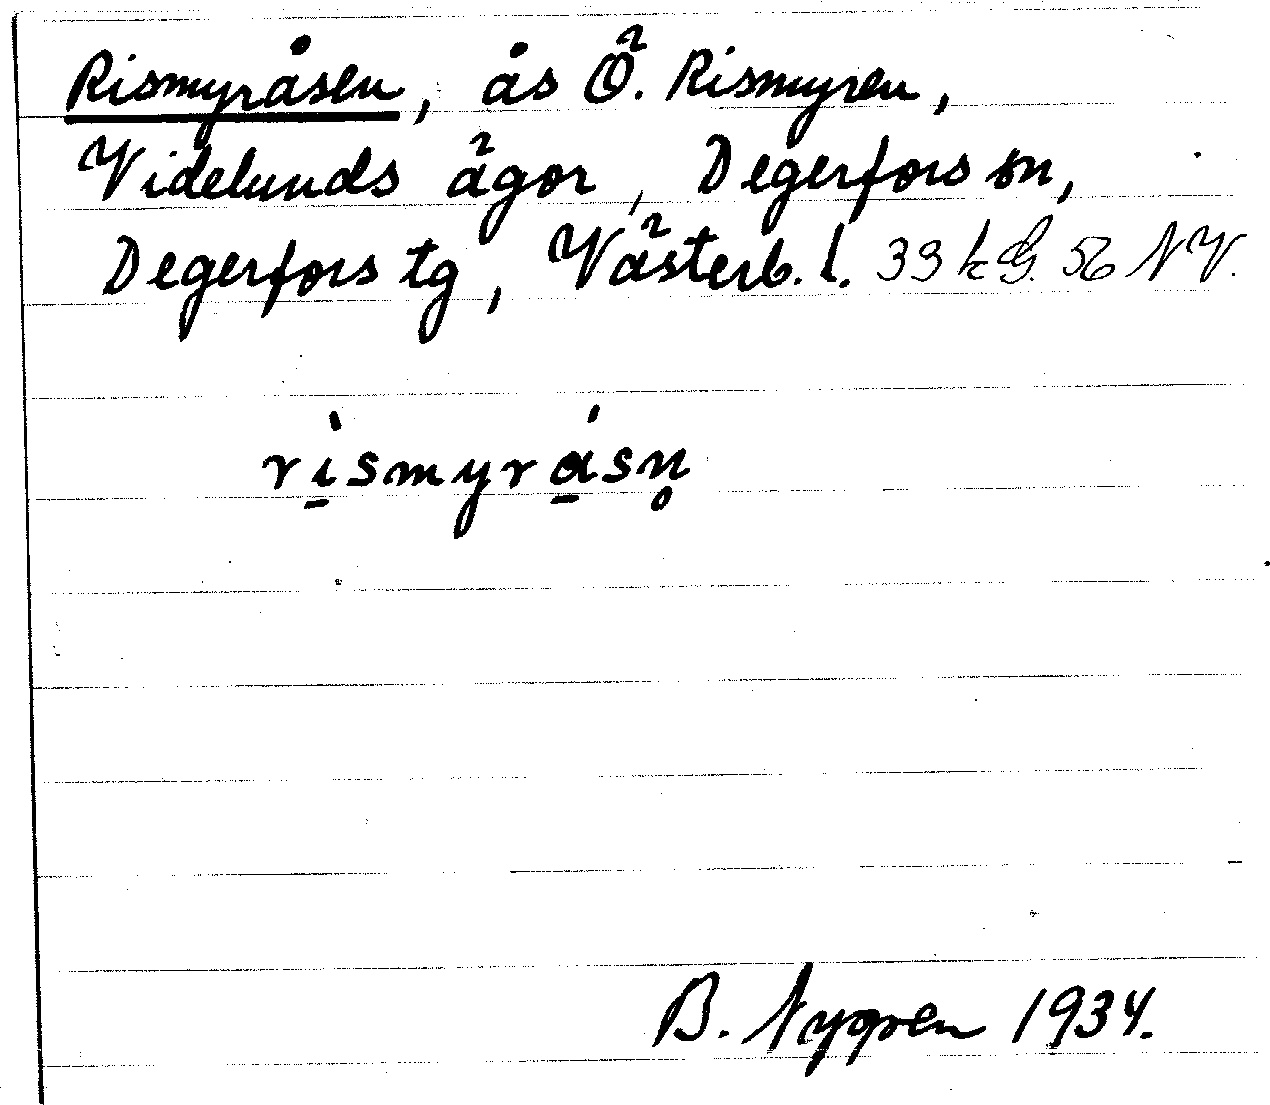 Rismyråsen, ås Ö. Rismyren,
Videlunds ägor, Degerfors sn,
Degerfors tg, Västerb. l. 33 k G. 56 NV.
rismyråsn̥
B. Nygren 1934.